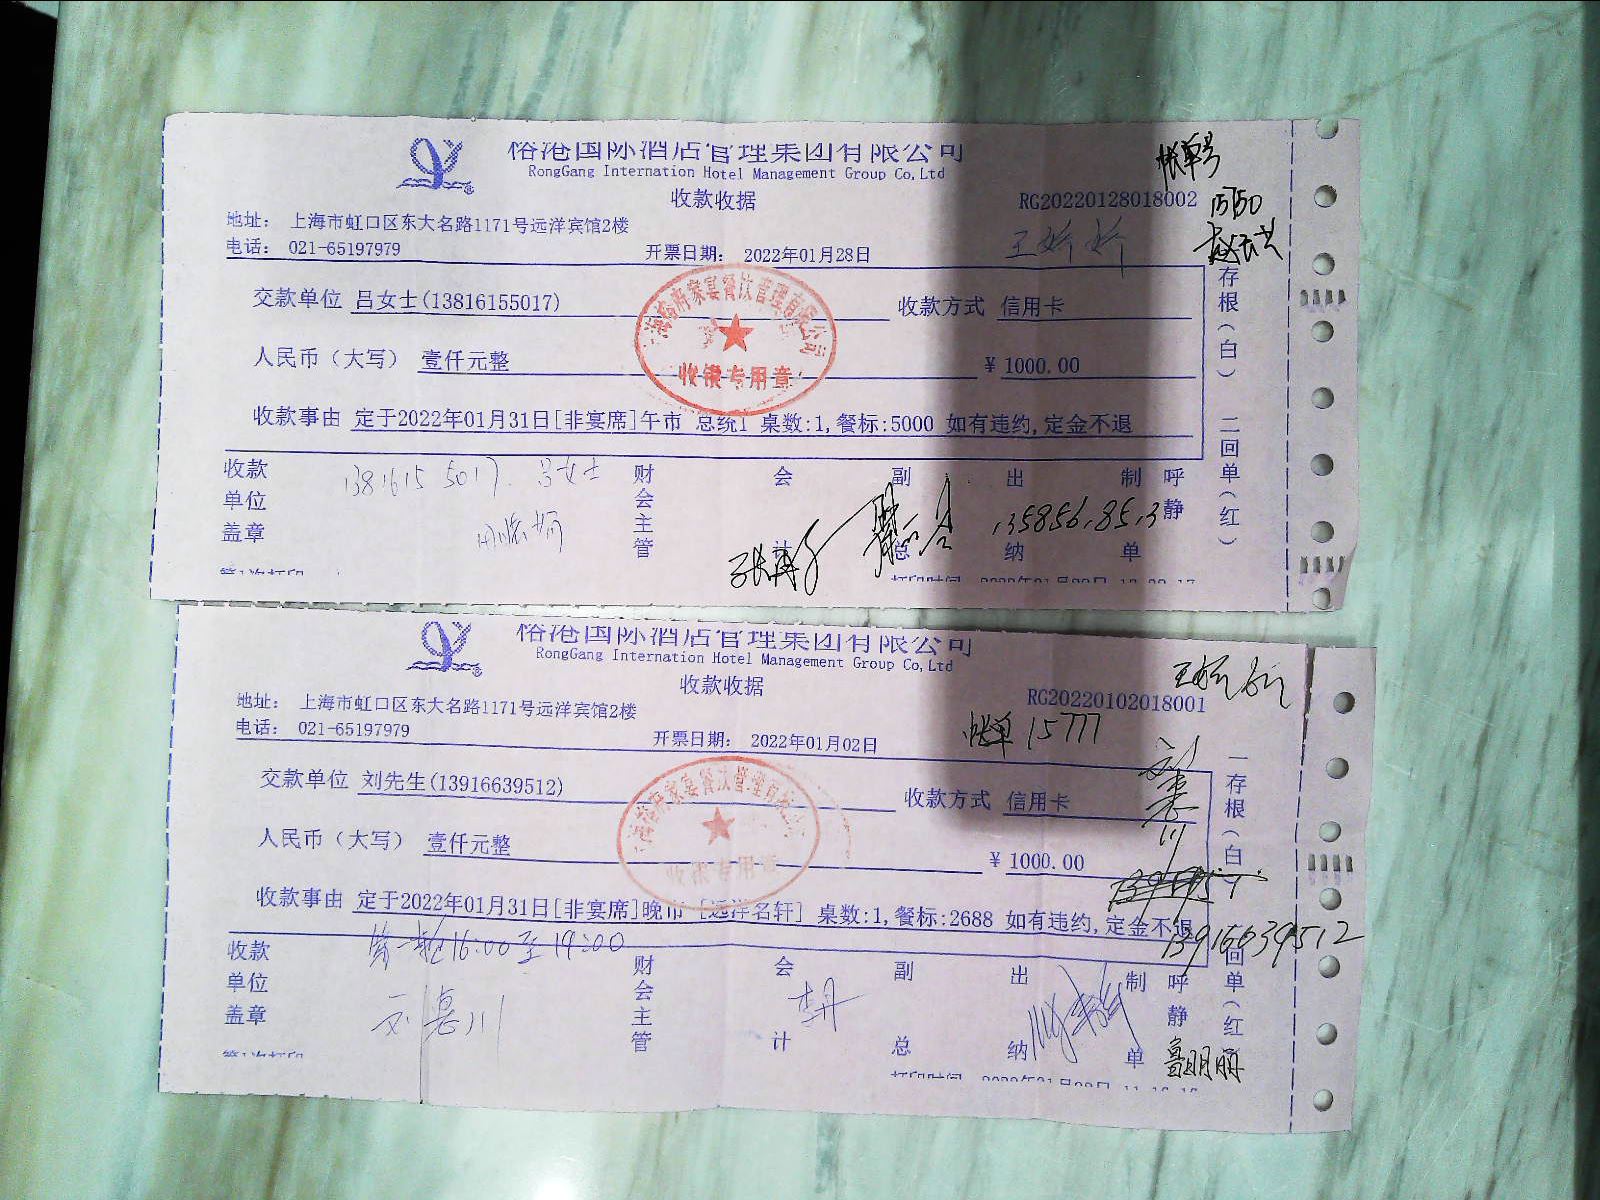 榕港国际酒店管理集团有限公司
RongGang Internation Hotel Management Group Co,Ltd
收款收据
帐单号
RG20220128018002
15750
地址： 上海市虹口区东大名路1171号远洋宾馆2楼
电话： 021-65197979
开票日期： 2022年01月28日
王娇娇
交款单位 吕女士(13816155017)
收款方式 信用卡
人民币（大写） 壹仟元整
￥1000.00
收款事由 定于2022年01月31日[非宴席]午市 总统1 桌数:1,餐标:5000 如有违约,定金不退
存根（白） 二回单（红）
收银专用章
收款单位盖章
13816155017. 吕女士
财会主管
会计
副总
出纳
制单
呼静
第1次打印
榕港国际酒店管理集团有限公司
RongGang Internation Hotel Management Group Co,Ltd
收款收据
RG20220102018001
地址： 上海市虹口区东大名路1171号远洋宾馆2楼
电话： 021-65197979
开票日期： 2022年01月02日
帐单 15777
交款单位 刘先生(13916639512)
收款方式 信用卡
人民币（大写） 壹仟元整
￥1000.00
收款事由 定于2022年01月31日[非宴席]晚市 [远洋名轩] 桌数:1,餐标:2688 如有违约,定金不退
13916639512
一存根（白） 二回单（红）
收银专用章
第一轮16:00至19:00
收款单位盖章
财会主管
会计
副总
出纳
制单
呼静
第1次打印